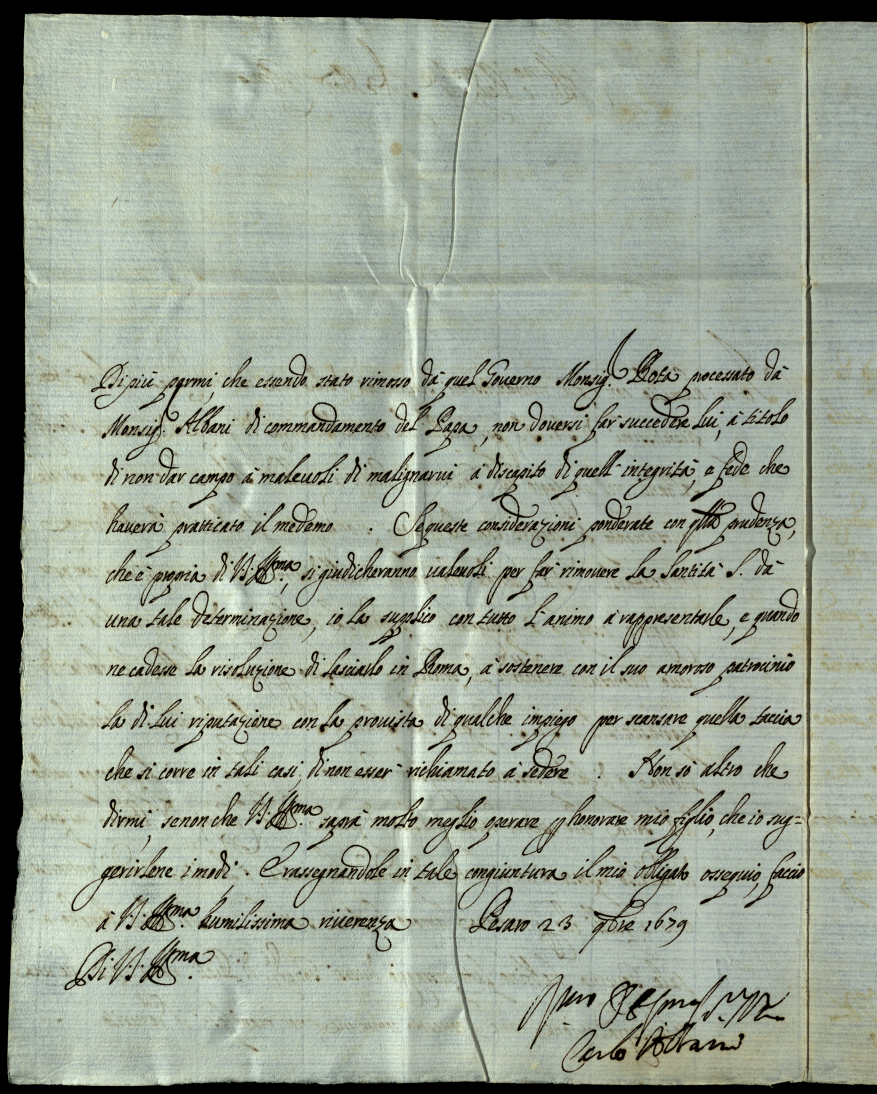 Di più parmi, che essendo stato rimosso dà quel Governo Monsig.r Rota processato da
Monsig.r Albani di commandamento del Papa, non doversi far succedere lui, à titolo
di non dar campo à malevoli di malignarvi à discapito di quell'integrità, e fede che
haverà pratticato il medemo. Se queste considerazioni ponderate con qlla prudenza,
che è propria di V.S. Ill.ma, si giudicheranno valevoli per far rimovere la Santità S. dà
una tale determinazione, io la supplico con tutto l'animo à rappresentarle, e quando
ne cadesse la risoluzione di lasciarlo in Roma, à sostenere con il suo amoroso patrocinio
la di lui riputazione con la provista di qualche impiego per scansare quella taccia
che si corre in tali casi, di non esser richiamato à sedere. Non sò altro che
dirmi, senon che V.S. Ill.ma saprà molto meglio operare p honorare mio figlio, che io sug=
gerirlene i modi. E rassegnandole in tale congiuntura il mio obligato ossequio, faccio
à V.S. Ill.ma humilissima riverenza Pesaro 23 9bre 1679
Di V.S. Ill.ma
Carlo Albani